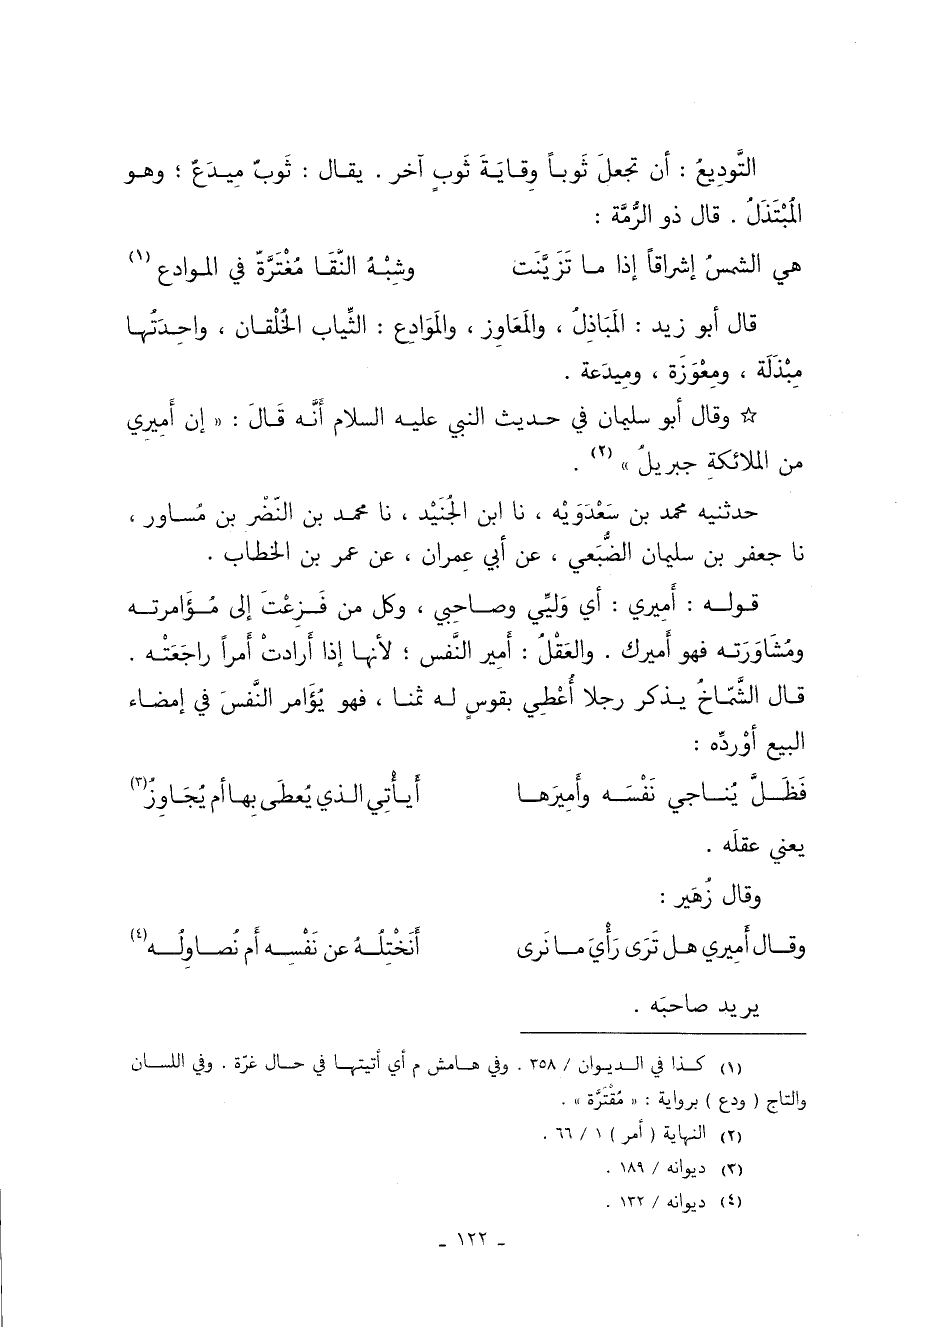 التَّوديعُ : أن تجعلَ ثَوباً وقايَةَ ثَوبٍ آخر . يقال : ثَوبٌ ميدَعٌ ؛ وهو
المُبْتَذَلُ . قال ذو الرُّمَّة :
هي الشمسُ إشراقاً إذا ما تَزَيَّنَت وشِبْهُ النَّقَا مُغْتَرَّةً في الموادع (١)
قال أبو زيد : المَبَاذِلُ ، والمَعَاوز ، والمَوَادِع : الثِّياب الخُلْقان ، واحِدَتُها
مِبْذَلَة ، ومِعْوَزَة ، ومِيدَعة .
☆ وقال أبو سليمان في حديث النبي عليه السلام أنَّه قَالَ : « إن أَمِيري
من الملائكةِ جبريلُ » (٢) .
حدثنيه محمد بن سَعْدَوَيْه ، نا ابن الجُنَيْد ، نا محمد بن النَّضْر بن مُساور ،
نا جعفر بن سليمان الضُّبَعي ، عن أبي عمران ، عن عمر بن الخطاب .
قوله : أَمِيري : أي وَلِيِّي وصاحِبي ، وكل من فَزِعْتَ إلى مُؤَامرته
ومُشَاوَرَته فهو أميرك . والعَقْلُ : أمير النَّفس ؛ لأنها إذا أَرادتْ أَمراً راجَعَتْه .
قال الشَّمّاخُ يذكر رجلا أُعْطِي بقوسٍ له ثمنا ، فهو يُؤَامر النَّفسَ في إمضاء
البيع أوْرَدِّه :
فَظَلَّ يُناجي نَفْسَه وأَمِيرَها أَيأْتِي الذي يُعطَى بِها أم يُجَاوِزُ (٣)
يعني عقلَه .
وقال زُهَير :
وقال أَمِيري هل تَرَى رَأْيَ ما نَرى أَنَخْتِلُهُ عن نَفْسِه أَم نُصاوِلُه (٤)
يريد صاحبَه .
(١) كذا في الديوان / ٣٥٨ . وفي هامش م أي أتيتها في حال غرّة . وفي اللسان
والتاج ( ودع ) برواية : « مُفْتَرَّة » .
(٢) النهاية ( أمر ) ١ / ٦٦ .
(٣) ديوانه / ١٨٩ .
(٤) ديوانه / ١٣٢ .
ـ ١٢٢ ـ